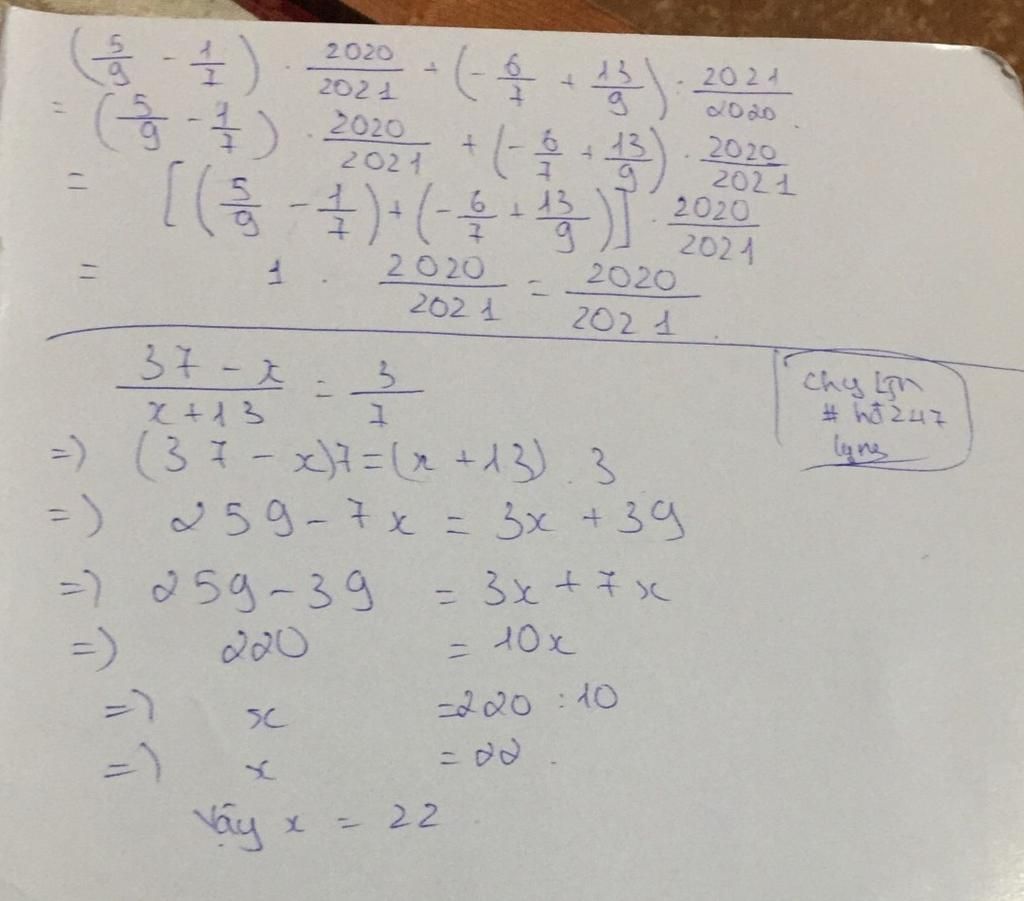 (5/9 - 1/7) . 2020/2021 + (-6/7 + 13/9) : 2021/2020
= (5/9 - 1/7) . 2020/2021 + (-6/7 + 13/9) . 2020/2021
= [(5/9 - 1/7) + (-6/7 + 13/9)] . 2020/2021
= 1 . 2020/2021 = 2020/2021
(37 - x)/(x + 13) = 3/7
=> (37 - x)7 = (x + 13) . 3
=> 259 - 7x = 3x + 39
=> 259 - 39 = 3x + 7x
=> 220 = 10x
=> x = 220 : 10
=> x = 22 .
Vậy x = 22
# hđ247